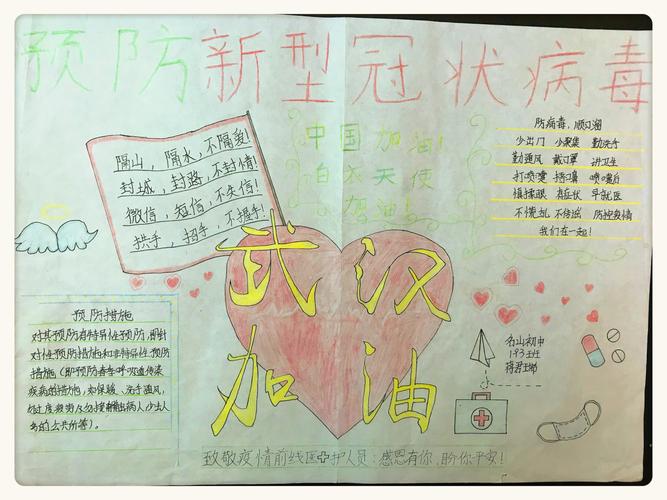 预防新型冠状病毒
隔山，隔水，不隔爱！
封城，封路，不封情！
微信，短信，不失信！
拱手，招手，不握手！
中国加油！
白衣天使
加油！
防病毒，顺口溜
少出门 少聚集 勤洗手
勤通风 戴口罩 讲卫生
打喷嚏 捂口鼻 喷嚏后
慎揉眼 有症状 早就医
不恐乱 不传谣 防控疫情
我们在一起！
武汉
加油
预防措施
对其预防有特异性预防，即针
对性预防措施和非特异性预防
措施（即预防春季呼吸道传染
疾病的措施，如保暖、洗手通风，
勿过度疲劳及勿接触病人少出人
多的公共所等）。
名山初中
193班
致敬疫情前线医护人员：感恩有你，盼你平安！